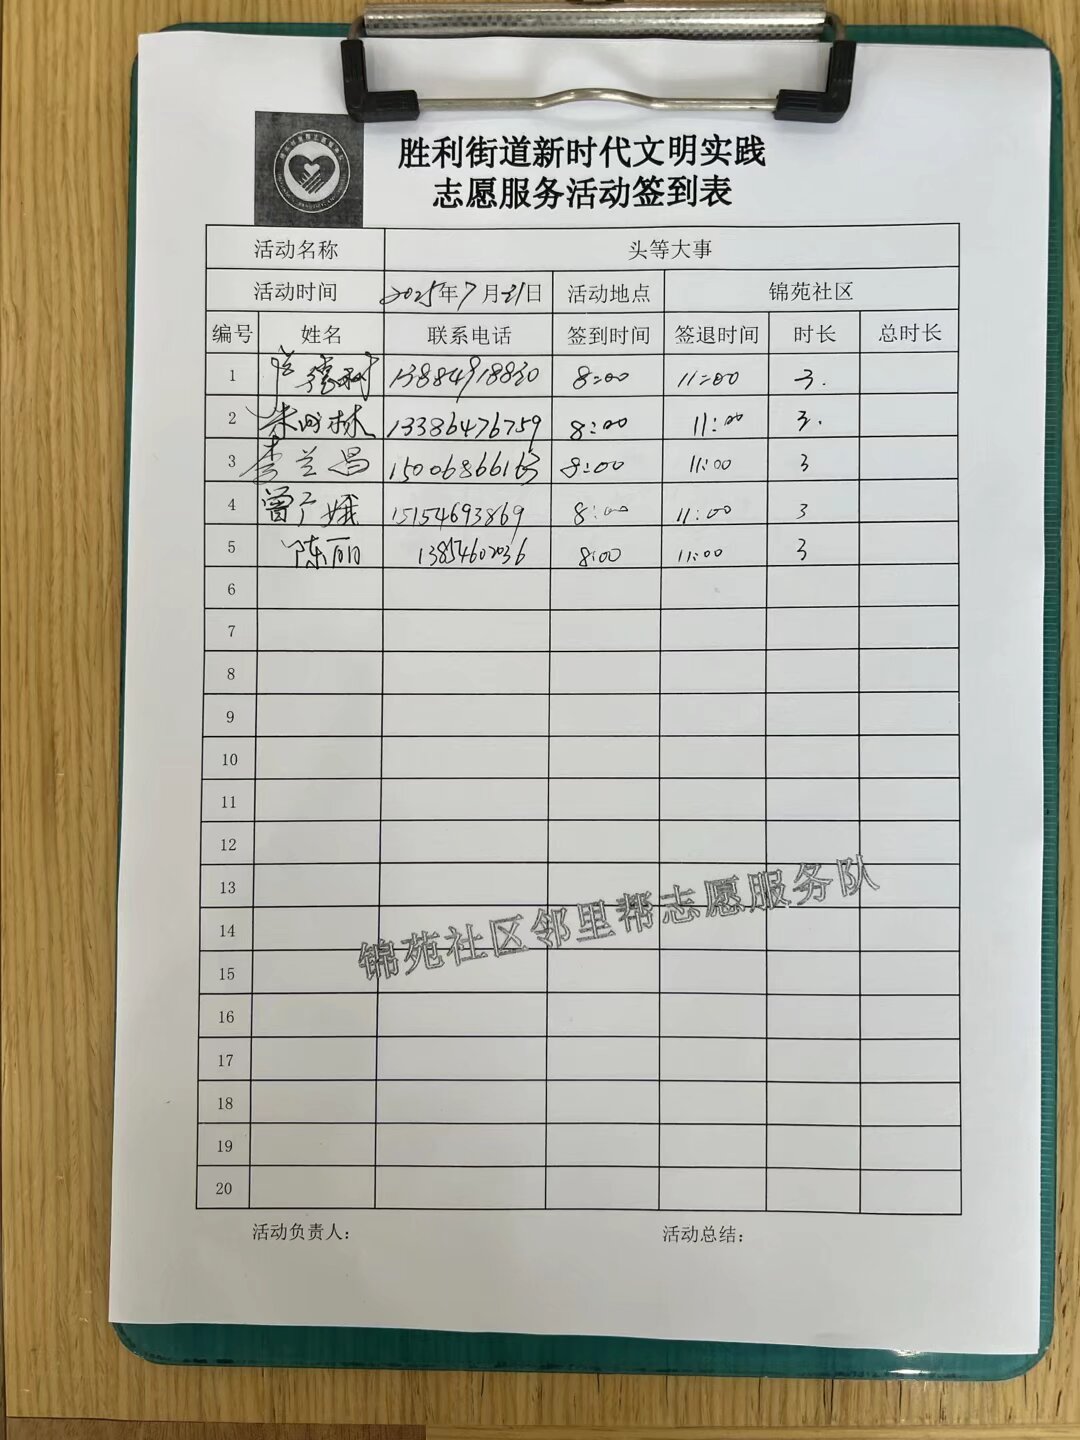 胜利街道新时代文明实践
志愿服务活动签到表
活动名称 头等大事
活动时间 2025年7月21日 活动地点 锦苑社区
编号 姓名 联系电话 签到时间 签退时间 时长 总时长
1 13884918830 8:00 11:00 3.
2 13386476759 8:00 11:00 3.
3 李兰昌 15006866163 8:00 11:00 3
4 曾广娥 15154693869 8:00 11:00 3
5 陈丽 13854602036 8:00 11:00 3
6
7
8
9
10
11
12
13
14
15
16
17
18
19
20
锦苑社区邻里帮志愿服务队
活动负责人： 活动总结：